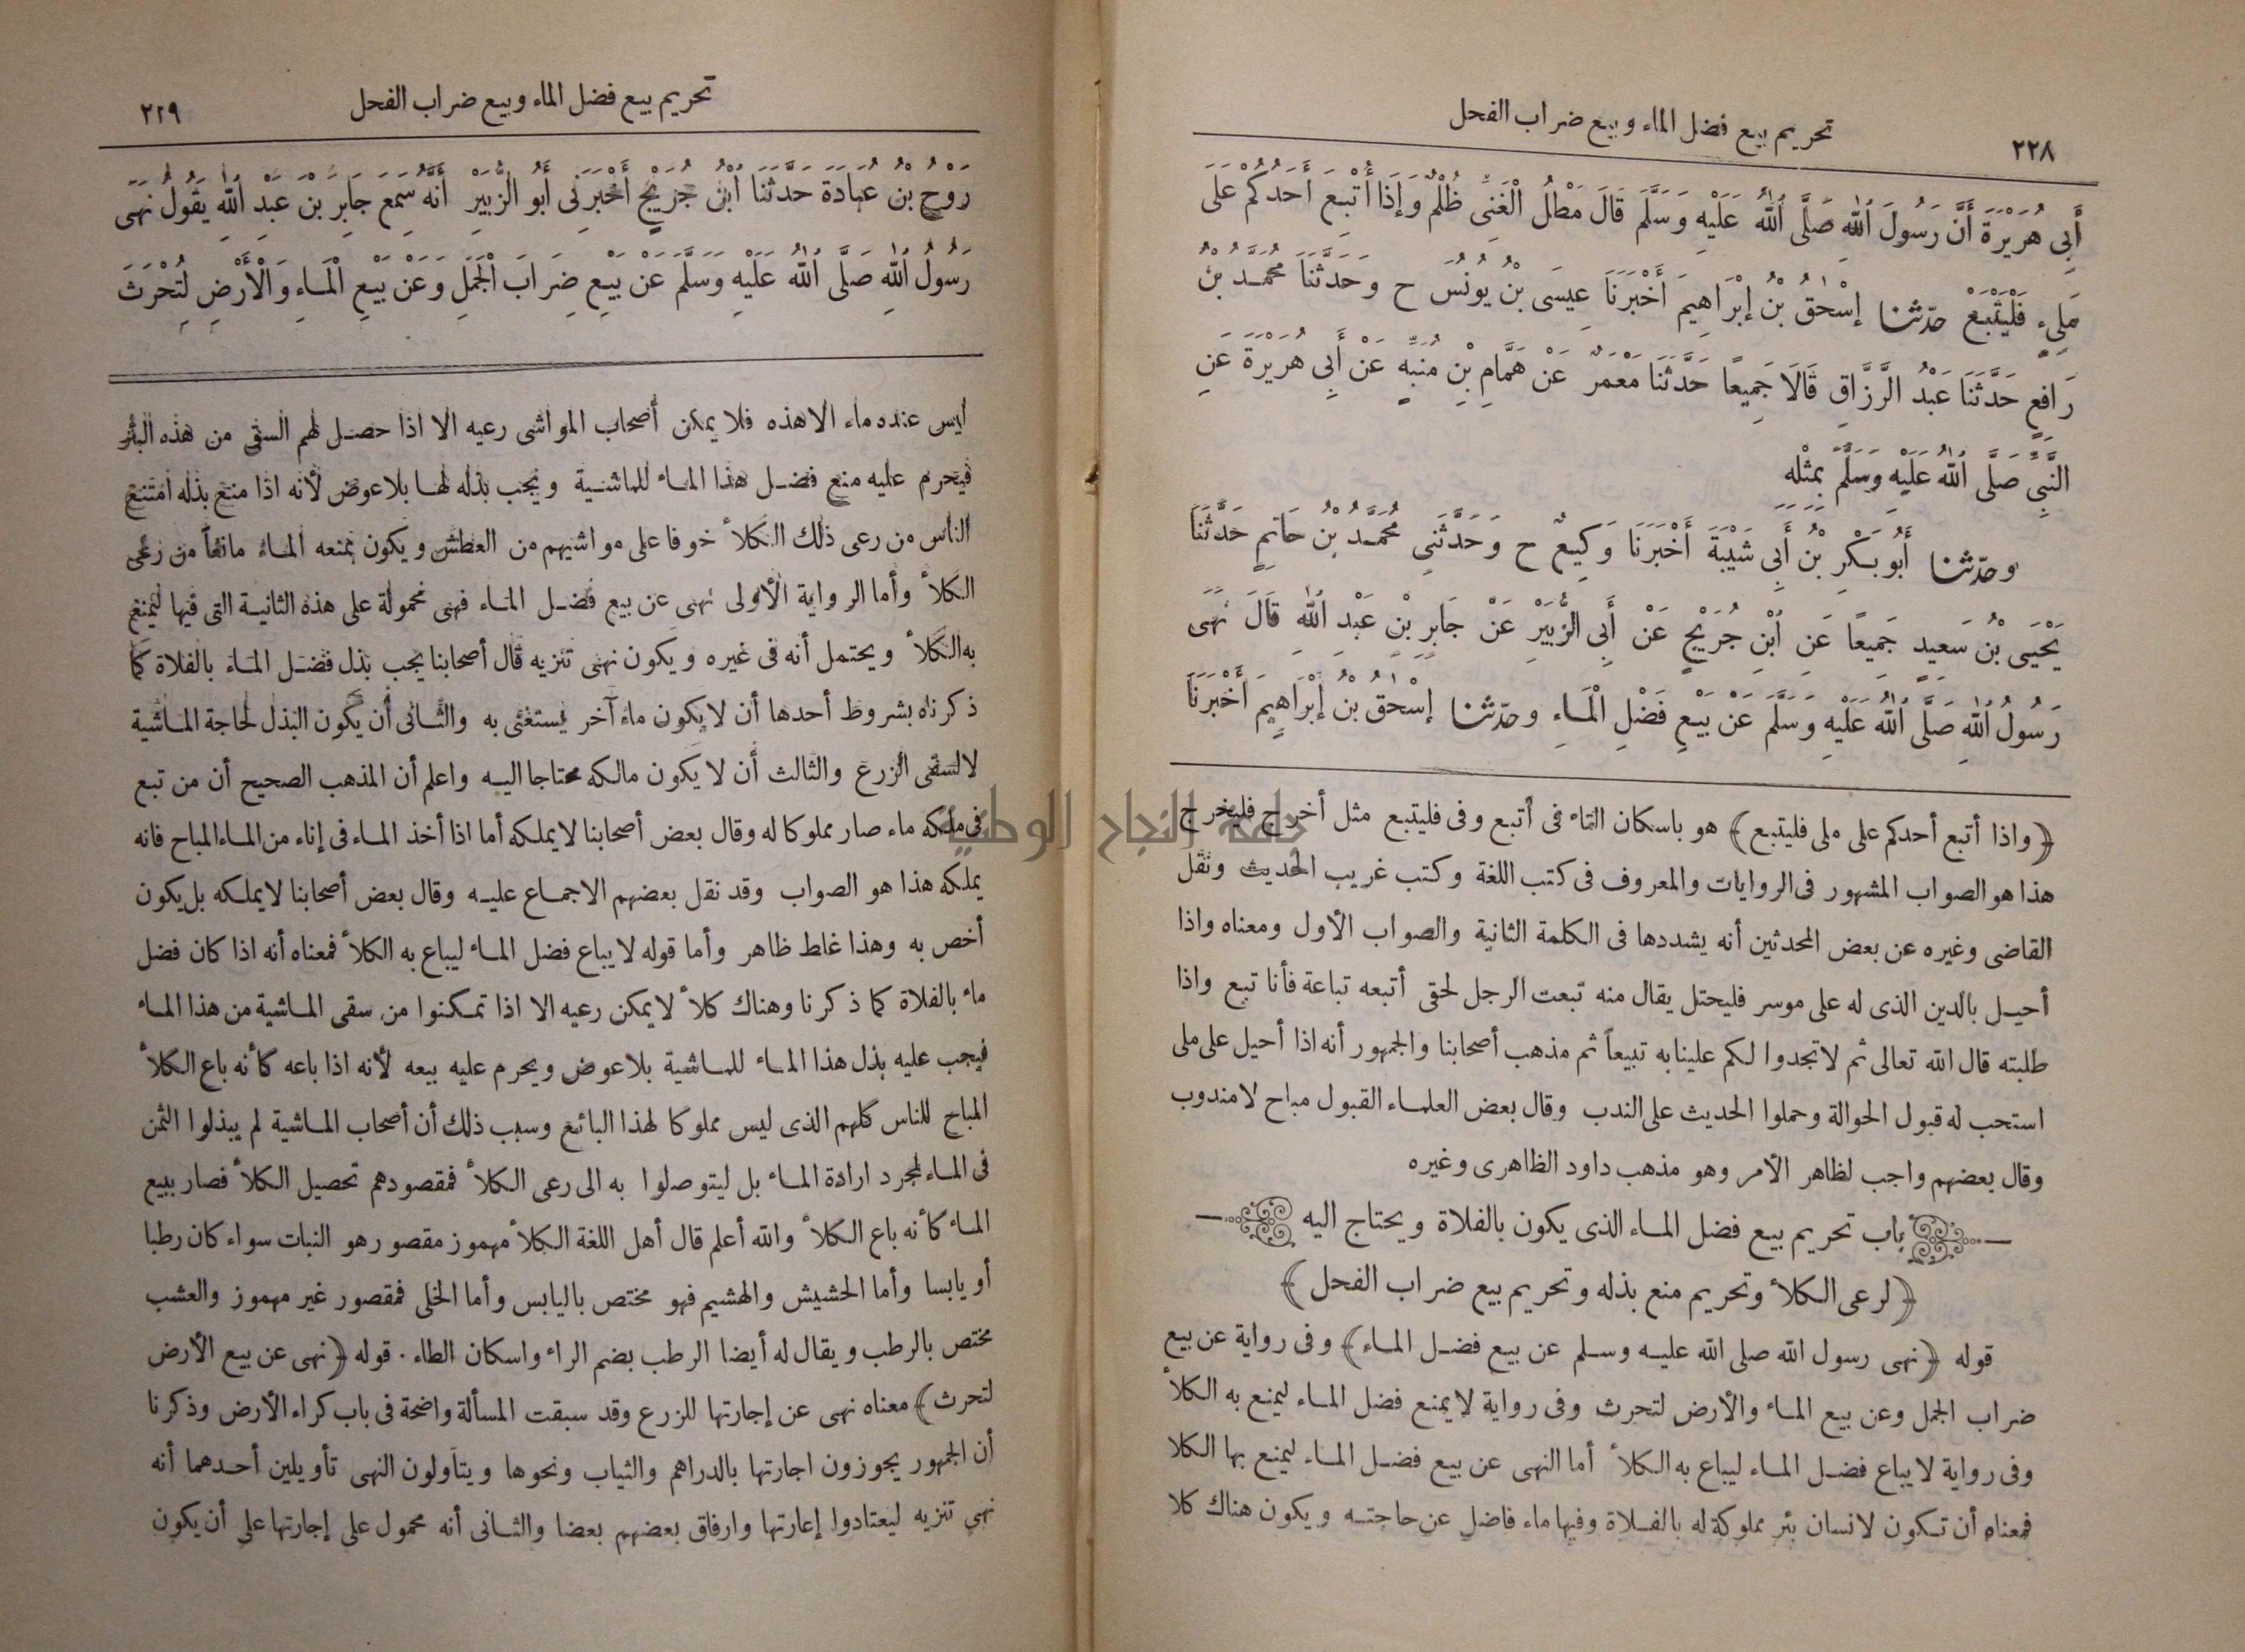 ٢٢٨
تحريم بيع فضل الماء وبيع ضراب الفحل
أَبِى هُرَيْرَةَ أَنَّ رَسُولَ اللهِ صَلَّى اللهُ عَلَيْهِ وَسَلَّمَ قَالَ مَطْلُ الْغَنِىِّ ظُلْمٌ وَإِذَا أُتْبِعَ أَحَدُكُمْ عَلَى
مَلِىءٍ فَلْيَتْبَعْ حدّثنا إِسْحَٰقُ بْنُ إِبْرَاهِيمَ أَخْبَرَنَا عِيسَى بْنُ يُونُسَ ح وَحَدَّثَنَا مُحَمَّدُ بْنُ
رَافِعٍ حَدَّثَنَا عَبْدُ الرَّزَّاقِ قَالَا جَمِيعًا حَدَّثَنَا مَعْمَرٌ عَنْ هَمَّامِ بْنِ مُنَبِّهٍ عَنْ أَبِى هُرَيْرَةَ عَنِ
النَّبِىِّ صَلَّى اللهُ عَلَيْهِ وَسَلَّمَ بِمِثْلِهِ
وحدّثنا أَبُو بَكْرِ بْنُ أَبِى شَيْبَةَ أَخْبَرَنَا وَكِيعٌ ح وَحَدَّثَنِى مُحَمَّدُ بْنُ حَاتِمٍ حَدَّثَنَا
يَحْيَى بْنُ سَعِيدٍ جَمِيعًا عَنِ ابْنِ جُرَيْجٍ عَنْ أَبِى الزُّبَيْرِ عَنْ جَابِرِ بْنِ عَبْدِ اللهِ قَالَ نَهَى
رَسُولُ اللهِ صَلَّى اللهُ عَلَيْهِ وَسَلَّمَ عَنْ بَيْعِ فَضْلِ الْمَاءِ وحدّثنا إِسْحَٰقُ بْنُ إِبْرَاهِيمَ أَخْبَرَنَا
﴿واذا أتبع أحدكم على ملى فليتبع﴾ هو باسكان التاء فى أتبع وفى فليتبع مثل أخرج فليخرج
هذا هو الصواب المشهور فى الروايات والمعروف فى كتب اللغة وكتب غريب الحديث ونقل
القاضى وغيره عن بعض المحدثين أنه يشددها فى الكلمة الثانية والصواب الأول ومعناه واذا
أحيل بالدين الذى له على موسر فليحتل يقال منه تبعت الرجل لحقى أتبعه تباعة فأنا تبع واذا
طلبته قال الله تعالى ثم لا تجدوا لكم علينا به تبيعاً ثم مذهب أصحابنا والجمهور أنه اذا أحيل على ملى
استحب له قبول الحوالة وحملوا الحديث على الندب وقال بعض العلماء القبول مباح لا مندوب
وقال بعضهم واجب لظاهر الأمر وهو مذهب داود الظاهرى وغيره
باب تحريم بيع فضل الماء الذى يكون بالفلاة ويحتاج اليه
﴿لرعى الكلأ وتحريم منع بذله وتحريم بيع ضراب الفحل﴾
قوله ﴿نهى رسول الله صلى الله عليه وسلم عن بيع فضل الماء﴾ وفى رواية عن بيع
ضراب الجمل وعن بيع الماء والأرض لتحرث وفى رواية لا يمنع فضل الماء ليمنع به الكلأ
وفى رواية لا يباع فضل الماء ليباع به الكلأ أما النهى عن بيع فضل الماء ليمنع بها الكلا
فمعناه أن تكون لانسان بئر مملوكة له بالفلاة وفيها ماء فاضل عن حاجته ويكون هناك كلا
تحريم بيع فضل الماء وبيع ضراب الفحل
٢٢٩
رَوْحُ بْنُ عُبَادَةَ حَدَّثَنَا ابْنُ جُرَيْجٍ أَخْبَرَنِى أَبُو الزُّبَيْرِ أَنَّهُ سَمِعَ جَابِرَ بْنَ عَبْدِ اللهِ يَقُولُ نَهَى
رَسُولُ اللهِ صَلَّى اللهُ عَلَيْهِ وَسَلَّمَ عَنْ بَيْعِ ضِرَابِ الْجَمَلِ وَعَنْ بَيْعِ الْمَاءِ وَالْأَرْضِ لِتُحْرَثَ
ليس عنده ماء الا هذه فلا يمكن أصحاب المواشى رعيه الا اذا حصل لهم السقى من هذه البئر
فيحرم عليه منع فضل هذا الماء للماشية ويجب بذله لها بلا عوض لأنه اذا منع بذله امتنع
الناس من رعى ذلك الكلأ خوفا على مواشيهم من العطش ويكون بمنعه الماء مانعاً من رعى
الكلأ وأما الرواية الأولى نهى عن بيع فضل الماء فهى محمولة على هذه الثانية التى فيها ليمنع
به الكلأ ويحتمل أنه فى غيره ويكون نهى تنزيه قال أصحابنا يجب بذل فضل الماء بالفلاة كما
ذكرناه بشروط أحدها أن لا يكون ماء آخر يستغنى به والثانى أن يكون البذل لحاجة الماشية
لا لسقى الزرع والثالث أن لا يكون مالكه محتاجا اليه واعلم أن المذهب الصحيح أن من تبع
فى ملكه ماء صار مملوكا له وقال بعض أصحابنا لا يملكه أما اذا أخذ الماء فى إناء من الماء المباح فانه
يملكه هذا هو الصواب وقد نقل بعضهم الاجماع عليه وقال بعض أصحابنا لا يملكه بل يكون
أخص به وهذا غلط ظاهر وأما قوله لا يباع فضل الماء ليباع به الكلأ فمعناه أنه اذا كان فضل
ماء بالفلاة كما ذكرنا وهناك كلأ لا يمكن رعيه الا اذا تمكنوا من سقى الماشية من هذا الماء
فيجب عليه بذل هذا الماء للماشية بلا عوض ويحرم عليه بيعه لأنه اذا باعه كأنه باع الكلأ
المباح للناس كلهم الذى ليس مملوكا لهذا البائع وسبب ذلك أن أصحاب الماشية لم يبذلوا الثمن
فى الماء لمجرد ارادة الماء بل ليتوصلوا به الى رعى الكلأ فمقصودهم تحصيل الكلأ فصار ببيع
الماء كأنه باع الكلأ والله أعلم قال أهل اللغة الكلأ مهموز مقصور هو النبات سواء كان رطبا
أو يابسا وأما الحشيش والهشيم فهو مختص باليابس وأما الخلى فمقصور غير مهموز والعشب
مختص بالرطب ويقال له أيضا الرطب بضم الراء واسكان الطاء . قوله ﴿نهى عن بيع الأرض
لتحرث﴾ معناه نهى عن إجارتها للزرع وقد سبقت المسألة واضحة فى باب كراء الأرض وذكرنا
أن الجمهور يجوزون اجارتها بالدراهم والثياب ونحوها ويتأولون النهى تأويلين أحدهما أنه
نهى تنزيه ليعتادوا إعارتها وارفاق بعضهم بعضا والثانى أنه محمول على إجارتها على أن يكون
جامعة النجاح الوطنية